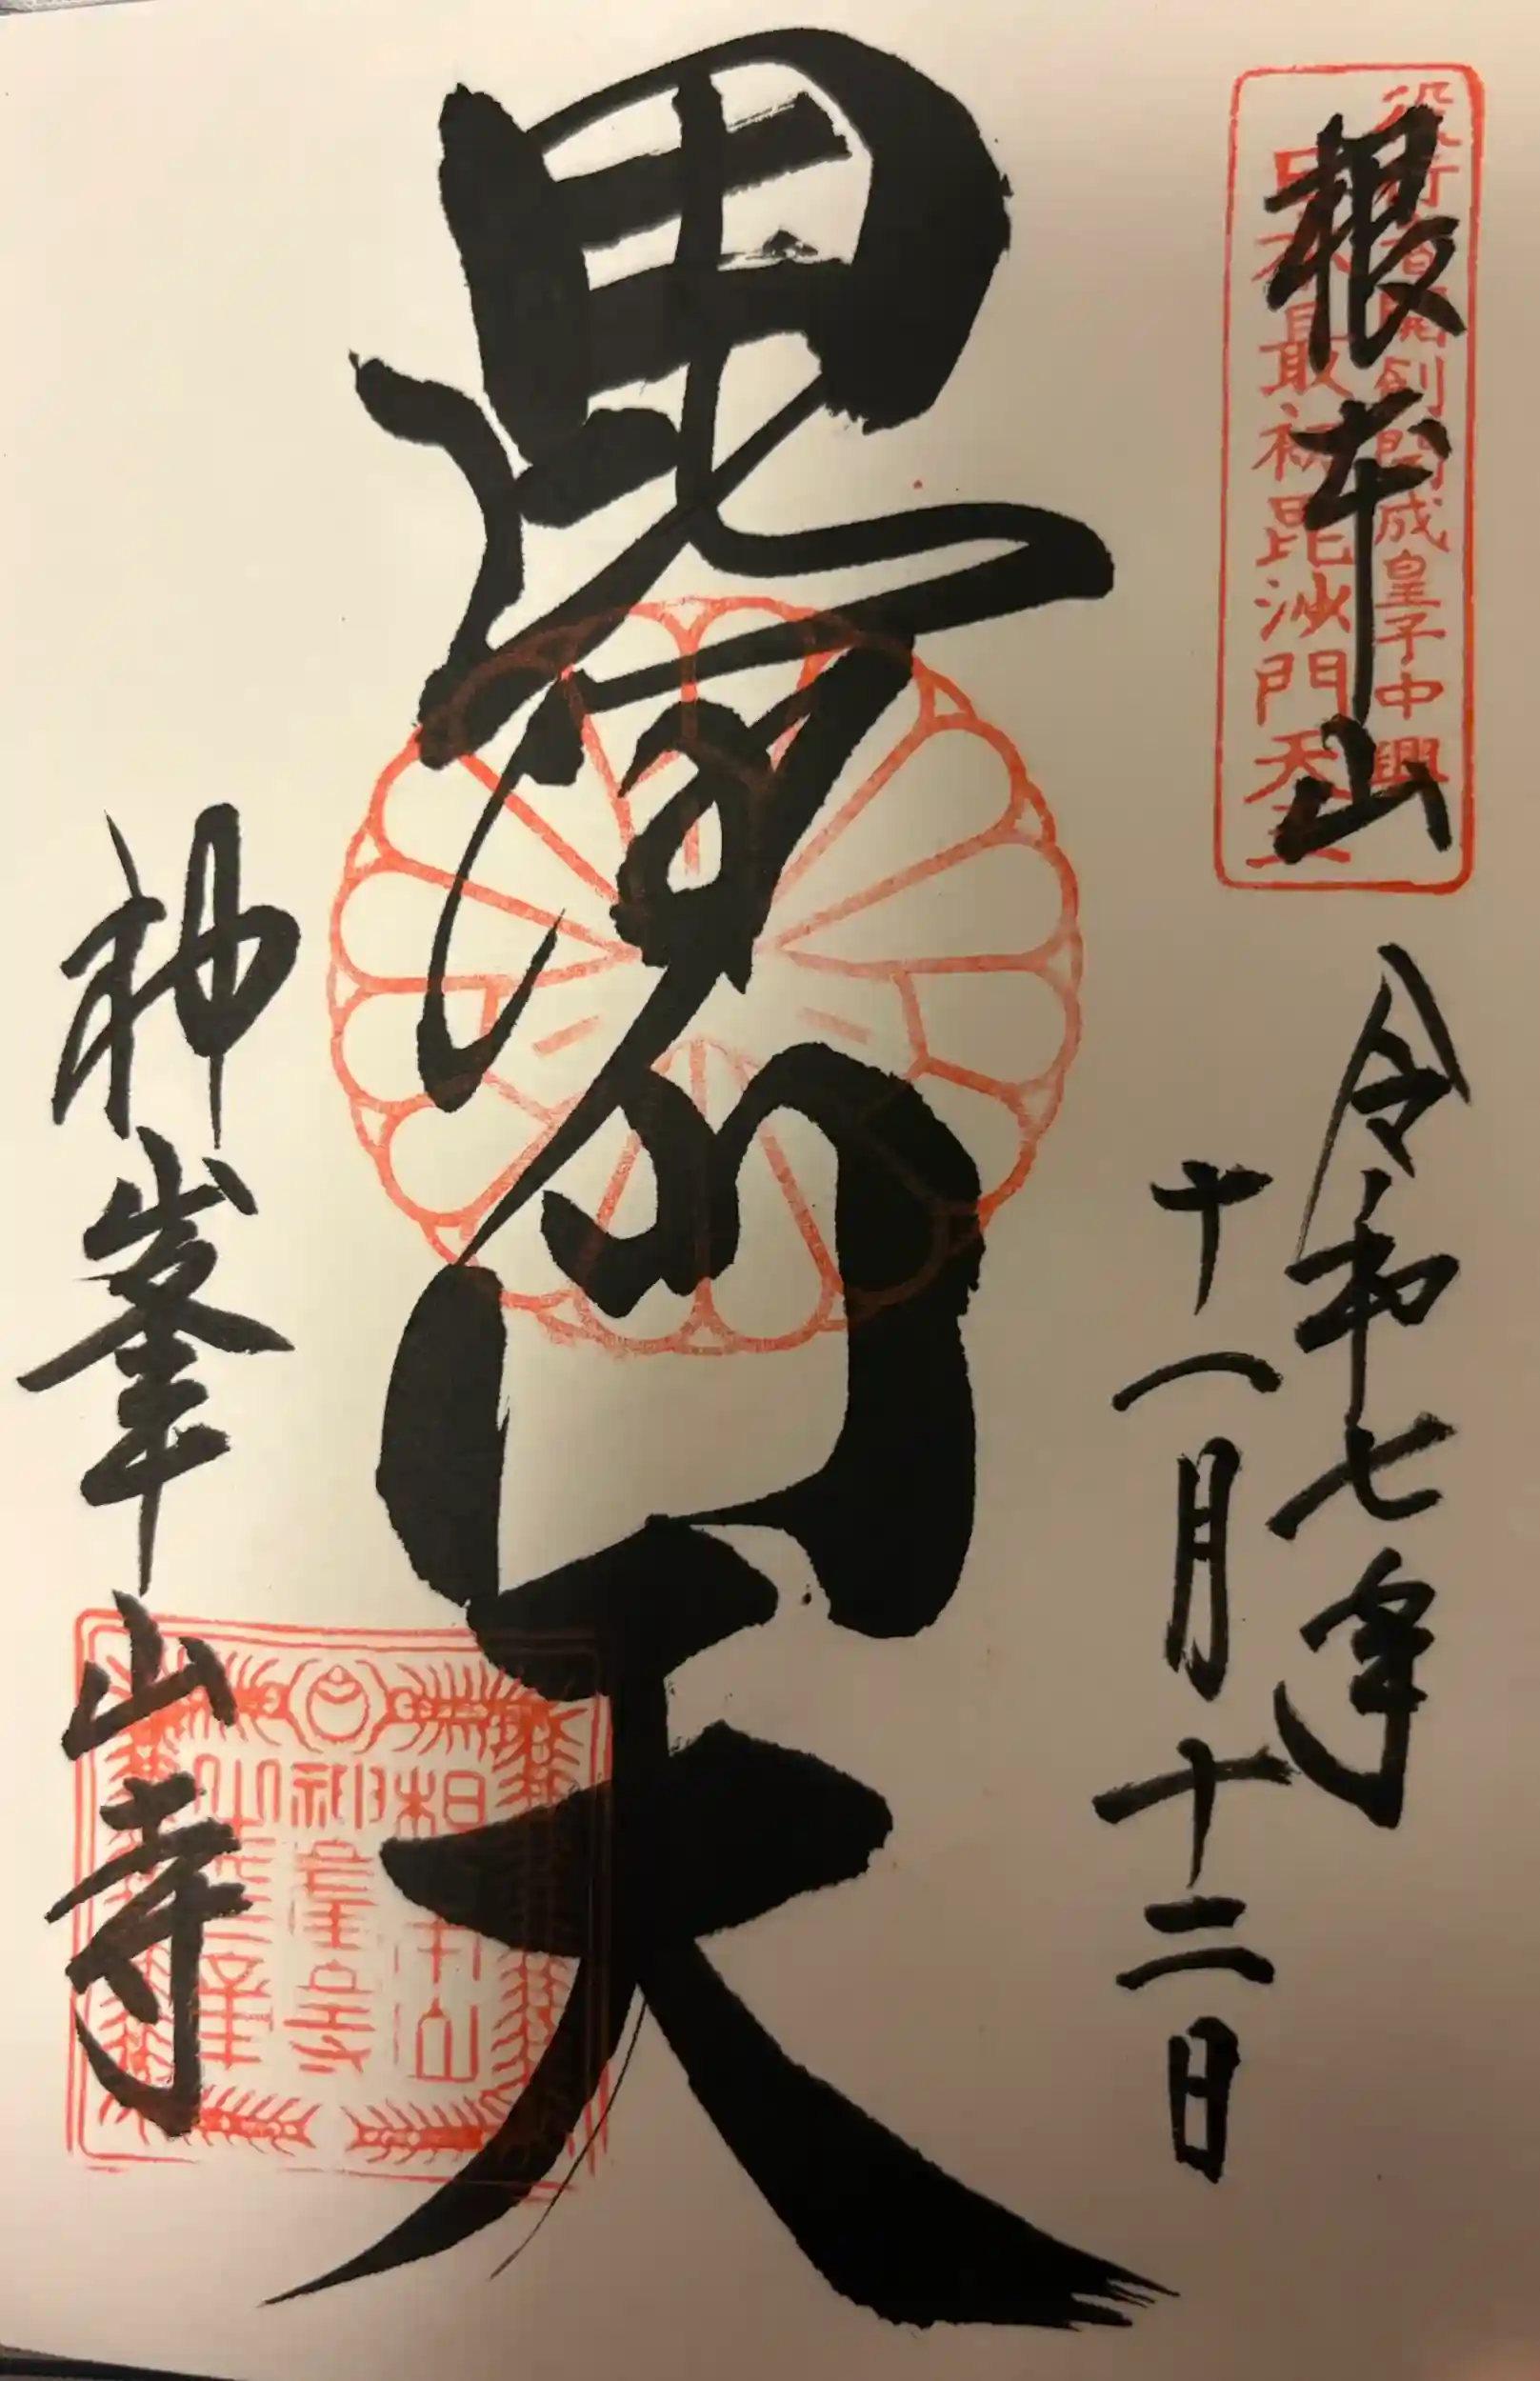 根本山
役行者開創開成皇子中興
日本最初毘沙門天王
令和七年
十一月十二日
毘沙門天
神峯山寺